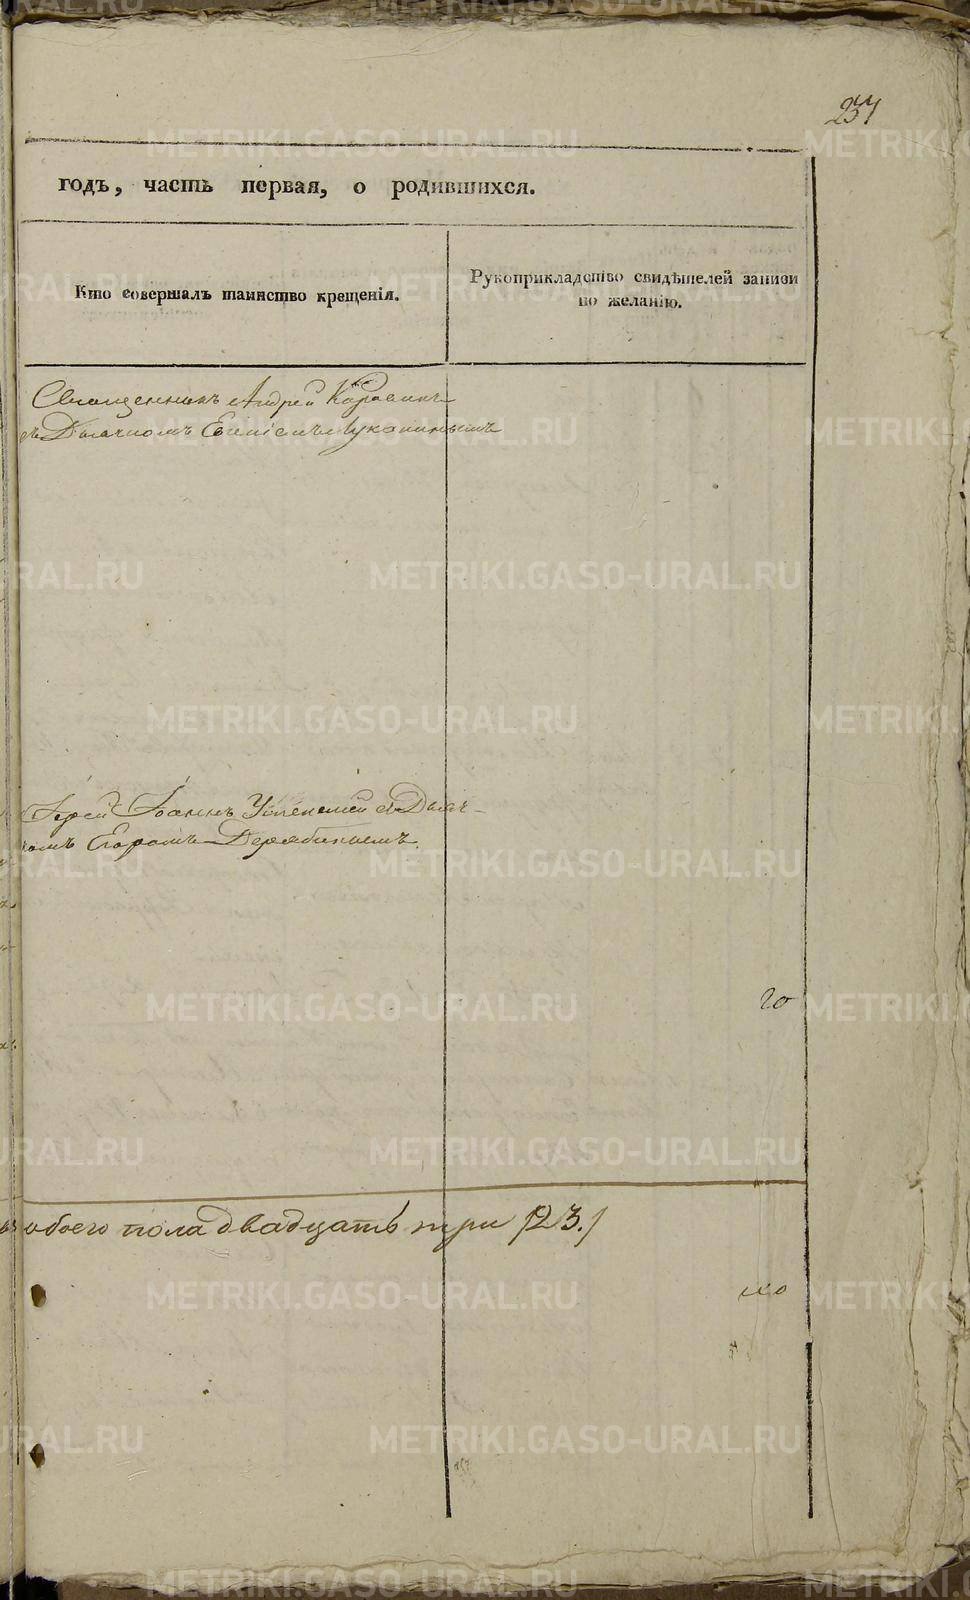 257
годъ, часть первая, о родившихся.
Кто совершалъ таинство крещенія.
Рукоприкладство свидѣтелей записи
по желанію.
Священникъ Андрей
съ Дьячкомъ Евгеніемъ Луканинымъ
Іерей Іоаннъ Успенскій съ Дьяч-
комъ Егоромъ Дерябинымъ.
20
обоего пола двадцать три /23./
METRIKI.GASO-URAL.RU